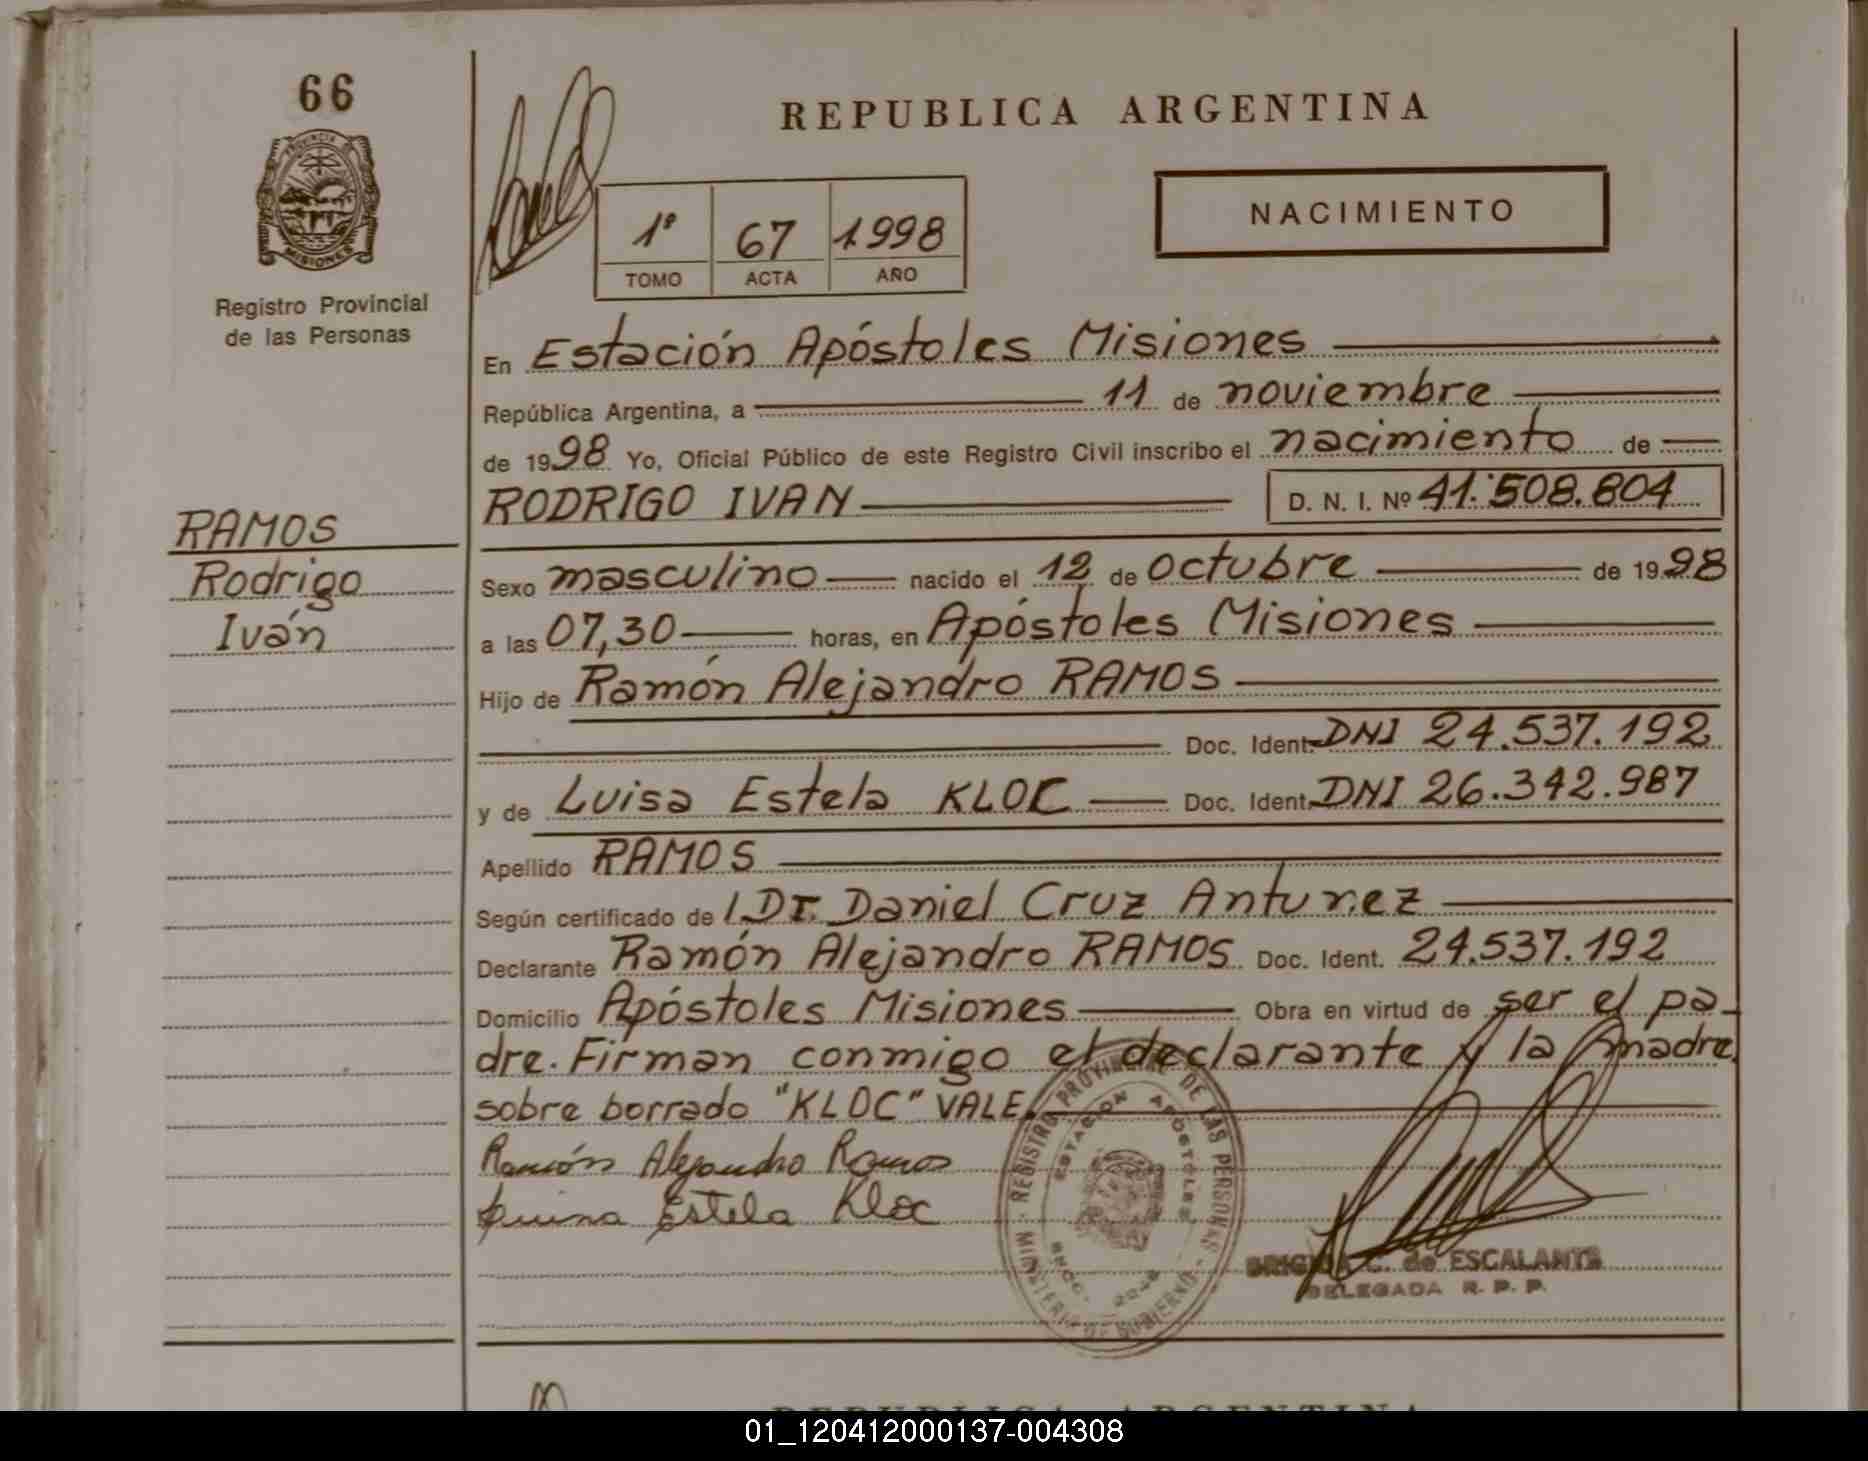 66
PROVINCIA DE
MISIONES
Registro Provincial
de las Personas
REPUBLICA ARGENTINA
1º 67 1998
TOMO ACTA AÑO
NACIMIENTO
En Estación Apóstoles Misiones
República Argentina, a 11 de noviembre
de 1998 Yo, Oficial Público de este Registro Civil inscribo el nacimiento de
RODRIGO IVAN D. N. I. Nº 41.508.804
RAMOS
Rodrigo
Iván
Sexo masculino nacido el 12 de octubre de 1998
a las 07,30 horas, en Apóstoles Misiones
Hijo de Ramón Alejandro RAMOS
Doc. Ident. DNI 24.537.192
y de Luisa Estela KLOC Doc. Ident. DNI 26.342.987
Apellido RAMOS
Según certificado de Dr. Daniel Cruz Antunez
Declarante Ramón Alejandro RAMOS Doc. Ident. 24.537.192
Domicilio Apóstoles Misiones Obra en virtud de ser el pa-
dre. Firman conmigo el declarante y la madre.
sobre borrado "KLOC" VALE.
Ramón Alejandro Ramos
Estela Kloc
REGISTRO PROVINCIAL DE LAS PERSONAS
ESTACION APOSTOLES
MINISTERIO DE GOBIERNO
C. de ESCALANTE
DELEGADA R. P. P.
REPUBLICA ARGENTINA
01_120412000137-004308